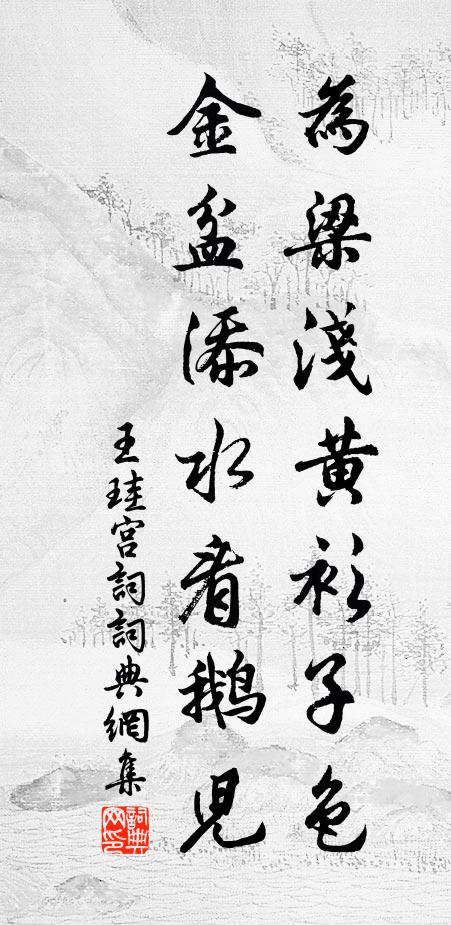 為梁淺黃衫子色
金盆添水看鵝兒
王珪宮詞詞典網集
詞典網印